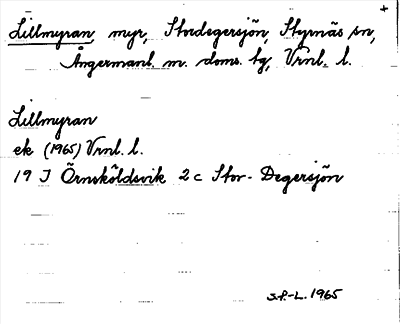 +
Lillmyran, myr, Stordegersjön, Styrnäs sn,
Ångermanl. m. doms. tg, Vrnl. l.
Lillmyran
ek (1965) Vrnl. l.
19 J Örnsköldsvik 2c Stor-Degersjön
S.P.-L. 1965